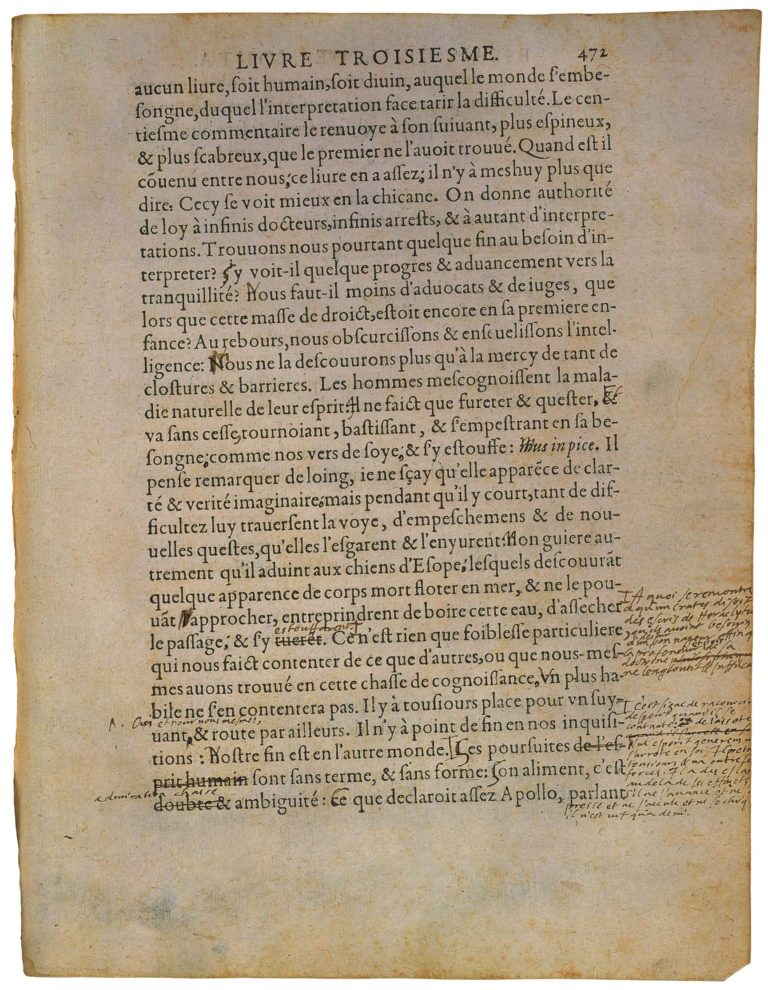 LIVRE TROISIESME. 472
aucun liure, soit humain, soit diuin, auquel le monde s'embe-
songne, duquel l'interpretation face tarir la difficulté. Le cen-
tiesme commentaire le renuoye à son suiuant, plus espineux,
& plus scabreux, que le premier ne l'auoit trouué. Quand est il
cõuenu entre nous, ce liure en a assez, il n'y à meshuy plus que
dire. Cecy se voit mieux en la chicane. On donne authorité
de loy à infinis docteurs, infinis arrests, & à autant d'interpre-
tations. Trouuons nous pourtant quelque fin au besoin d'in-
terpreter? s'y voit-il quelque progres & aduancement vers la
tranquillité? Nous faut-il moins d'aduocats & de iuges, que
lors que cette masse de droict, estoit encore en sa premiere en-
fance? Au rebours, nous obscurcissons & enseuelissons l'intel-
ligence: Nous ne la descouurons plus qu'à la mercy de tant de
clostures & barrieres. Les hommes mescognoissent la mala-
die naturelle de leur esprit: Il ne faict que fureter & quester, Et
va sans cesse, tournoiant, bastissant, & s'empestrant en sa be-
songne, comme nos vers de soye, & s'y estouffe: Mus in pice. Il
pense remarquer de loing, ie ne sçay qu'elle apparẽce de clar-
té & verité imaginaire: mais pendant qu'il y court, tant de dif-
ficultez luy trauersent la voye, d'empeschemens & de nou-
uelles questes, qu'elles l'esgarent & l'enyurent: Non guiere au-
trement qu'il aduint aux chiens d'Esope, lesquels descouurãt
quelque apparence de corps mort floter en mer, & ne le pou-
uãt approcher, entreprindrent de boire cette eau, d'assecher
le passage, & s'y tuerẽt. Ce n'est rien que foiblesse particuliere
estouffarent
qui nous faict contenter de ce que d'autres, ou que nous-mes-
mes auons trouué en cette chasse de cognoissance, Vn plus ha-
bile ne s'en contentera pas. Il y à tousiours place pour vn suy-
Oui et pour nous mesmes,
uant, & route par ailleurs. Il n'y à point de fin en nos inquisi-
tions: Nostre fin est en l'autre monde. Ses poursuites de l'es-
prit humain sont sans terme, & sans forme: Son aliment, c'est
admiration chasse
doubte & ambiguité: Ce que declaroit assez Apollo, parlant
A quoi se
Crates disoit
des escris de
d'un bon nageur
C'est signe de